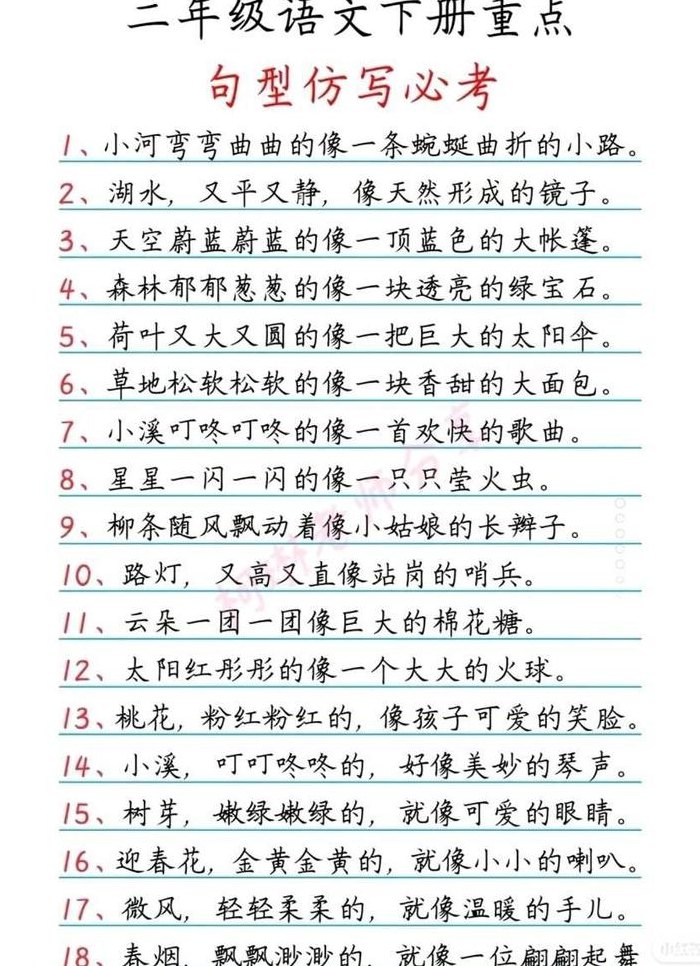 年级语文下册重点
句型仿写必考
1、小河弯弯曲曲的像一条蜿蜒曲折的小路。
2、湖水，又平又静，像天然形成的镜子。
3、天空蔚蓝蔚蓝的像一顶蓝色的大帐篷。
4、森林郁郁葱葱的像一块透亮的绿宝石。
5、荷叶又大又圆的像一把巨大的太阳伞。
6、草地松软松软的像一块香甜的大面包。
7、小溪叮咚叮咚的像一首欢快的歌曲。
8、星星一闪一闪的像一只只莹火虫。
9、柳条随风飘动着像小姑娘的长辫子。
10、路灯，又高又直像站岗的哨兵。
11、云朵一团一团像巨大的棉花糖。
12、太阳红彤彤的像一个大大的火球。
13、桃花，粉红粉红的，像孩子可爱的笑脸。
14、小溪，叮叮咚咚的，好像美妙的琴声。
15、树芽，嫩绿嫩绿的，就像可爱的眼睛。
16、迎春花，金黄金黄的，就像小小的喇叭。
17、微风，轻轻柔柔的，就像温暖的手儿。
18、春烟，飘飘渺渺的，就像一位翩翩起舞